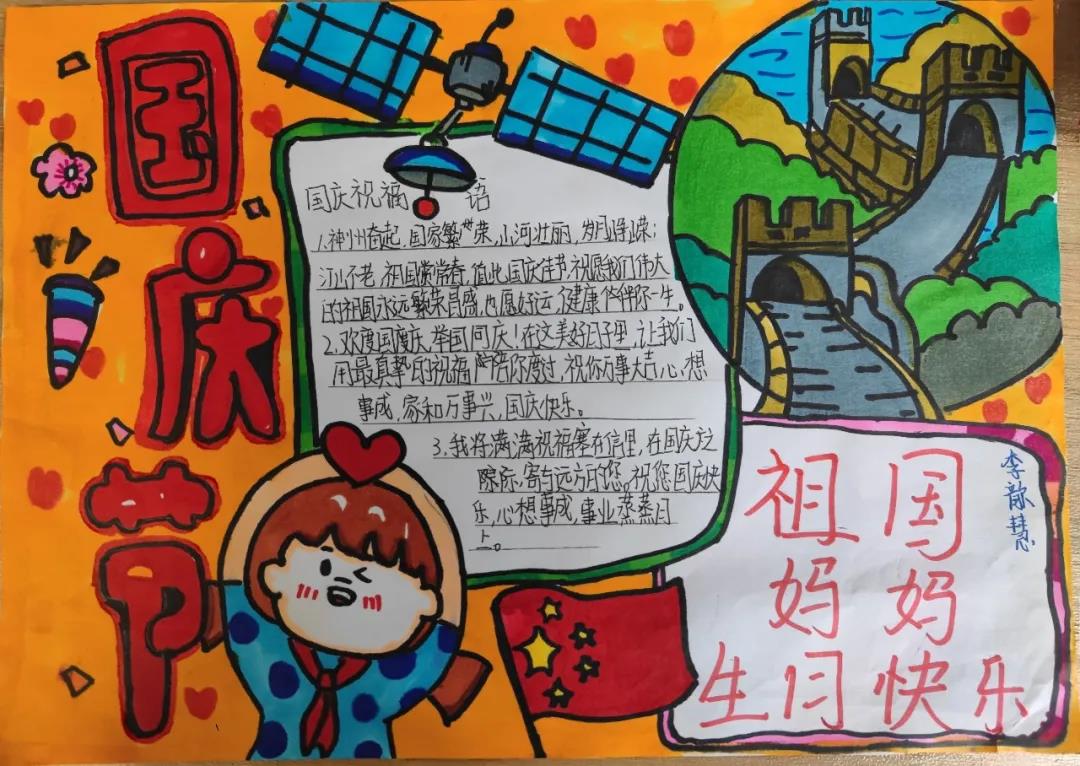 国庆节
国庆祝福语
1.神州奋起,国家繁荣,山河壮丽,岁月峥嵘;
江山不老,祖国常春,值此国庆佳节,祝愿我们伟大
的祖国永远繁荣昌盛,也愿好运,健康伙伴你一生。
2.欢度国庆,举国同庆!在这美好日子里,让我们
用最真挚的祝福陪你度过,祝你万事大吉,心想
事成,家和万事兴,国庆快乐。
3.我将满满祝福塞在信里,在国庆之
际,寄与远方的您。祝您国庆快
乐,心想事成,事业蒸蒸日
上。
李歆慧
祖国
妈妈
生日快乐